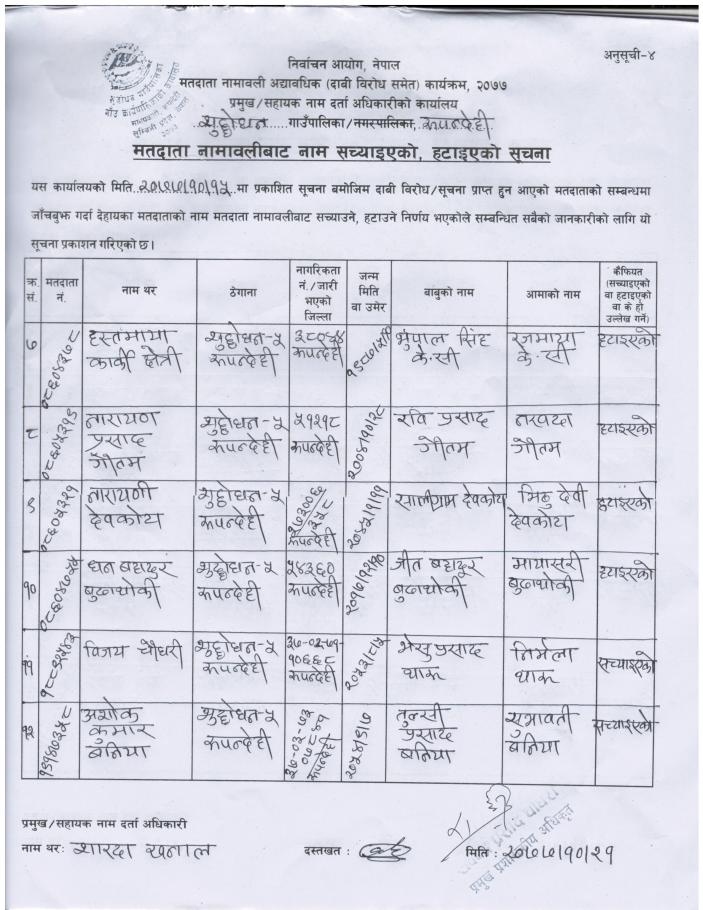 अनुसूची-४
निर्वाचन आयोग, नेपाल
मतदाता नामावली अद्यावधिक (दावी विरोध समेत) कार्यक्रम, २०७७
प्रमुख/सहायक नाम दर्ता अधिकारीको कार्यालय
शुद्धोधन गाउँपालिका/नगरपालिका, रुपन्देही
मतदाता नामावलीबाट नाम सच्याइएको, हटाइएको सूचना
यस कार्यालयको मिति २०७७/१०/१५ मा प्रकाशित सूचना बमोजिम दाबी विरोध/सूचना प्राप्त हुन आएको मतदाताको सम्बन्धमा
जाँचबुझ गर्दा देहायका मतदाताको नाम मतदाता नामावलीबाट सच्याउने, हटाउने निर्णय भएकोले सम्बन्धित सबैको जानकारीको लागि यो
सूचना प्रकाशन गरिएको छ।
क्र. सं. मतदाता नं. नाम थर ठेगाना नागरिकता नं./जारी भएको जिल्ला जन्म मिति वा उमेर बाबुको नाम आमाको नाम कैफियत (सच्याइएको वा हटाइएको वा के हो उल्लेख गर्ने)
७ हस्तमाया कार्की क्षेत्री शुद्धोधन-५ रुपन्देही रुपन्देही भुपाल सिंह के.सी के.सी हटाइएको
८ नारायण प्रसाद गौतम शुद्धोधन-५ रुपन्देही ५१२१८ रुपन्देही २००४/१०/२८ रवि प्रसाद गौतम गौतम हटाइएको
९ नारायणी देवकोटा शुद्धोधन-५ रुपन्देही रुपन्देही देवकोटा देवी देवकोटा हटाइएको
१० धन बहादुर बुढाथोकी शुद्धोधन-५ रुपन्देही ५४३६० रुपन्देही जीत बहादुर बुढाथोकी मायासरी बुढाथोकी हटाइएको
११ विजय चौधरी शुद्धोधन-५ रुपन्देही ३७-०२-७१-१०६६८ रुपन्देही प्रसाद थारू निर्मला थारू सच्याइएको
१२ अशोक कुमार बनिया शुद्धोधन-५ रुपन्देही रुपन्देही तुल्सी प्रसाद बनिया सुभावती बनिया सच्याइएको
प्रमुख/सहायक नाम दर्ता अधिकारी
नाम थर: शारदा खनाल दस्तखत : मिति : २०७७/१०/२१
प्रमुख प्रशासकीय अधिकृत